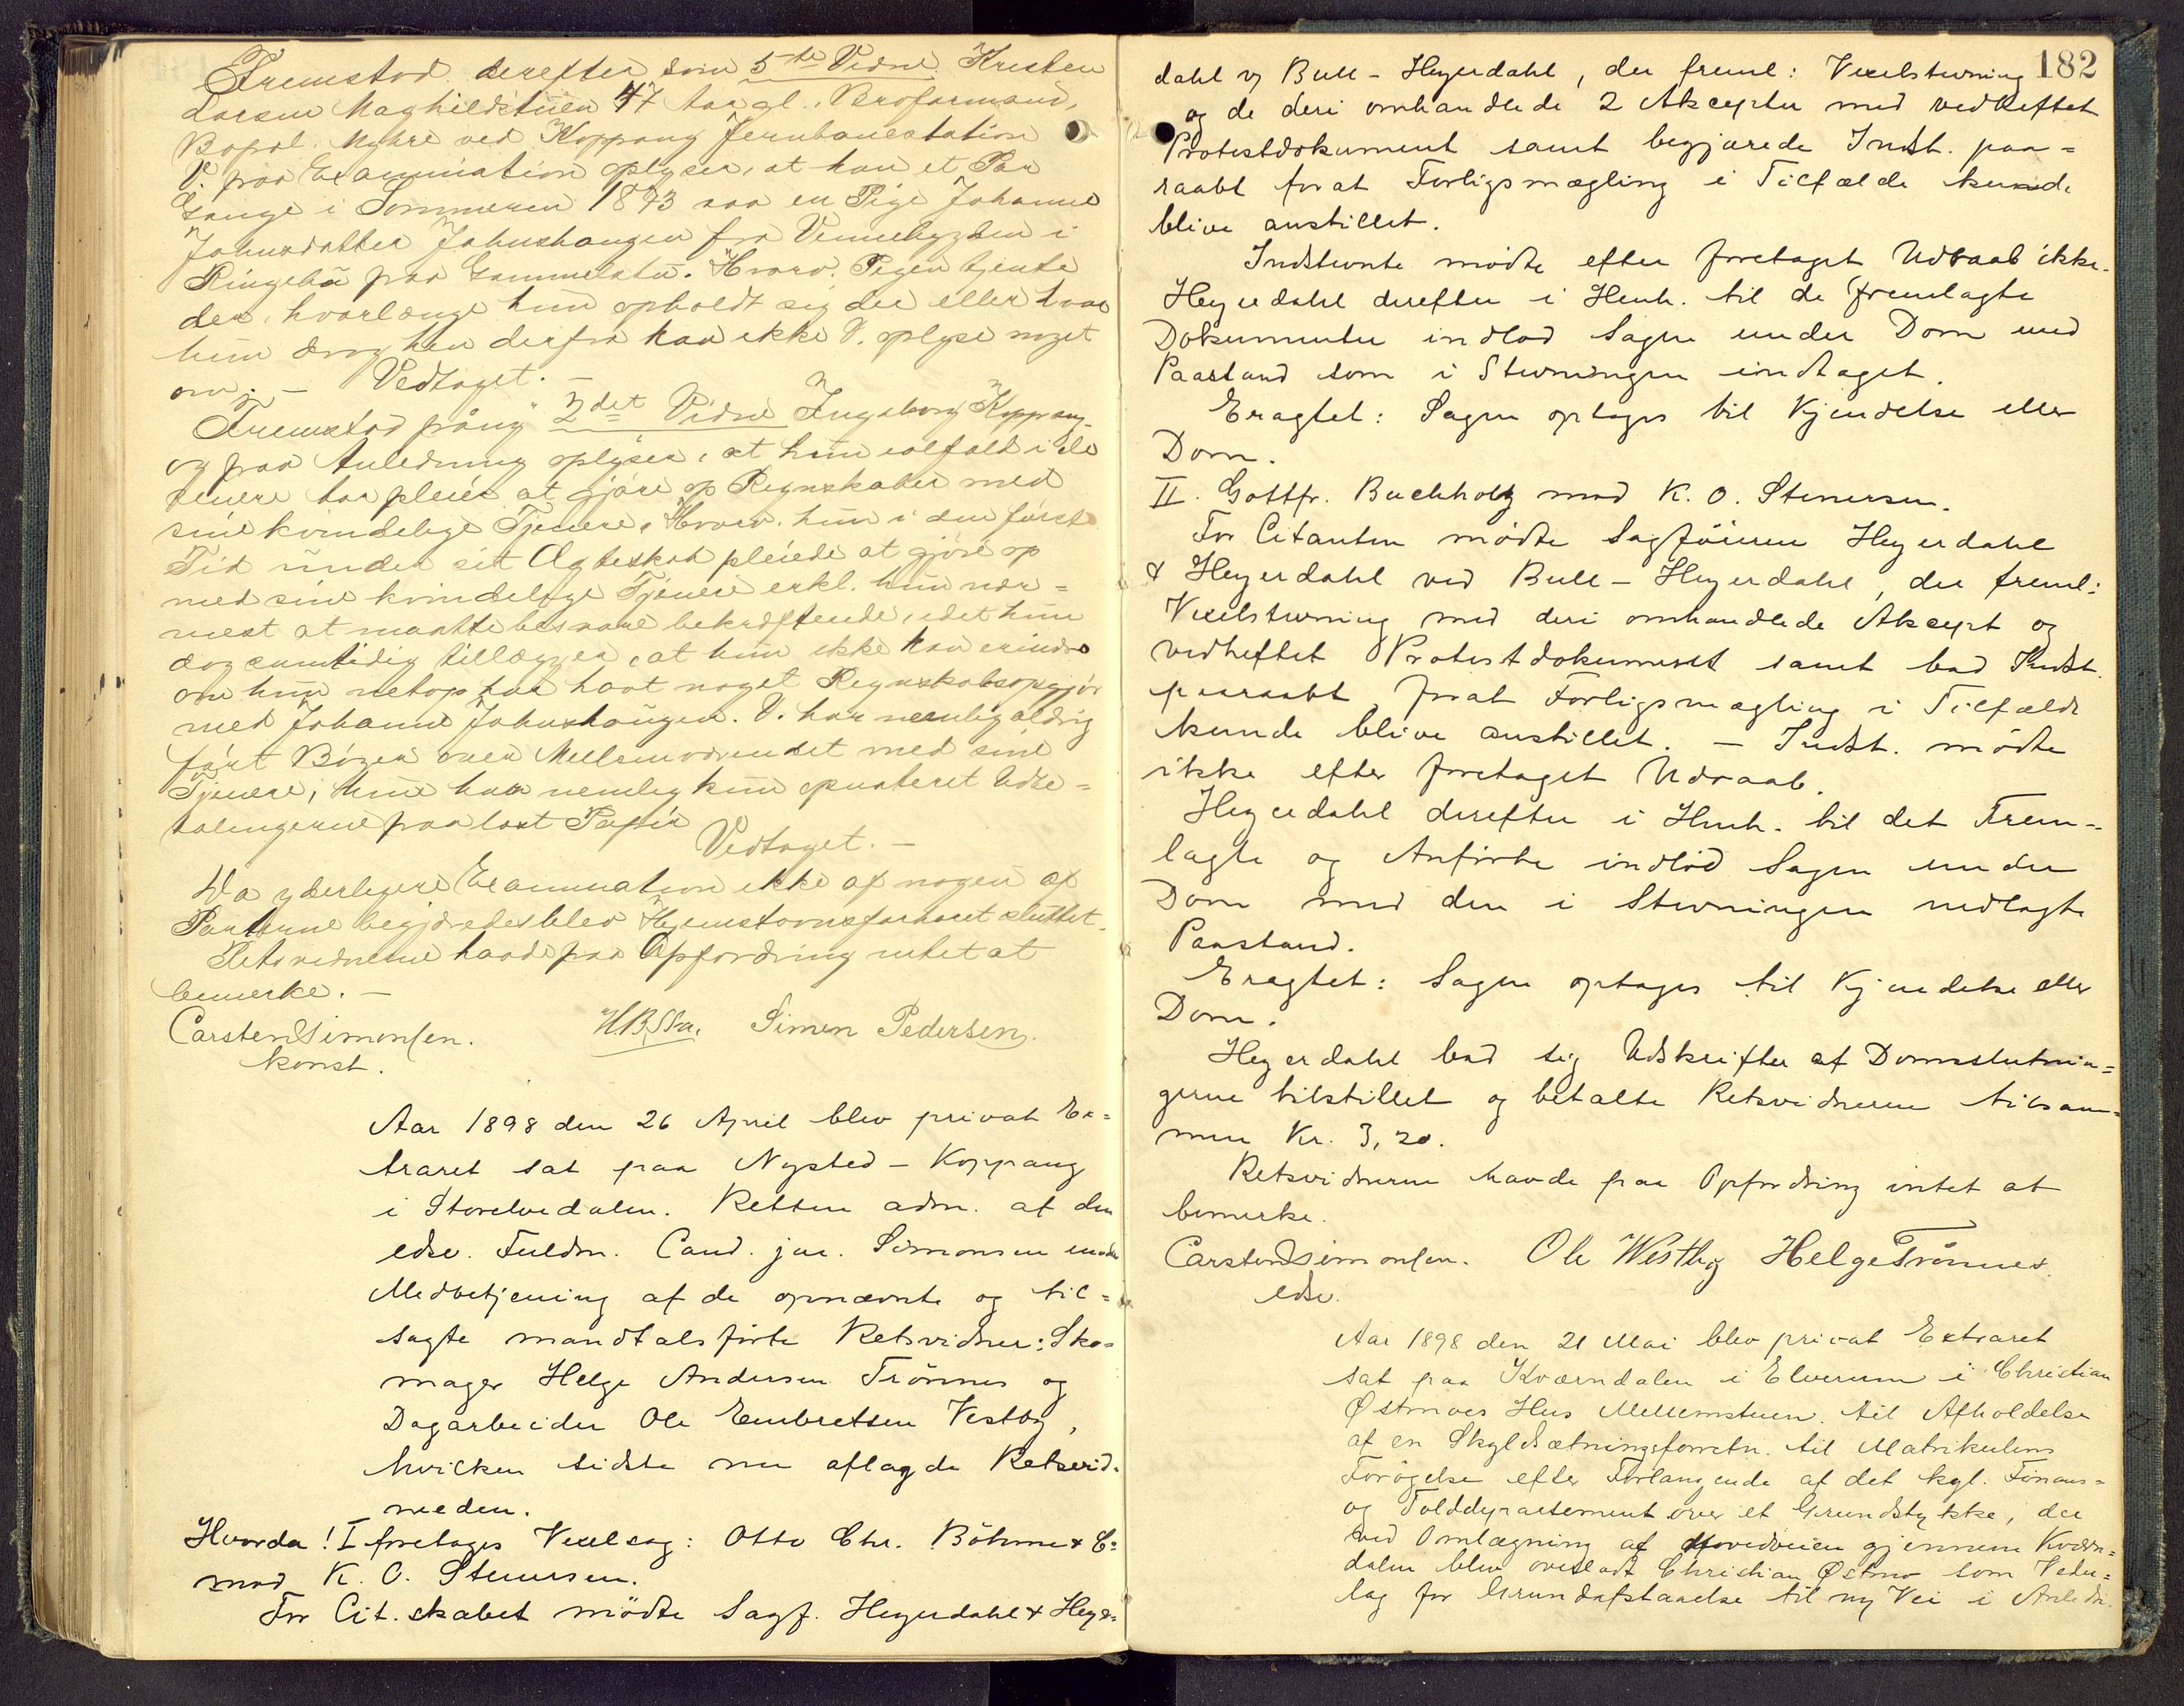 Fremstod derefter som 5te Vidne Kristen
Larsen Maghildstuen 47 Aar gl. Broformand,
Bopæl. Myhre ved Koppang Jernbanestation
V. paa Examination oplyser, at han et Par
Gange i Sommeren 1873 saa en Pige Johanne
Johnsdatter Johnshaugen fra Vennebygden i
Ringebu paa Gammelstu. Hvorv. Pigen tjente
der, hvorlænge hun opholdt sig der eller hvor
hun drog hen derfra kan ikke V. oplyse noget
om. – Vedtaget. –
Fremstod påny 2det Vidne Ingeborg Koppang
og paa Anledning oplyser, at hun ialfald i de
senere Aar pleier at gjøre op Regnskaber med
sine kvindelige Tjenere. Hvorv. hun i den første
Tid under sit Ægteskab pleiede at gjøre op
med sine kvindelige Tjenere erkl. hun nær=
mest at maatte besvare bekræftende, idet hun
dog samtidig tillægger, at hun ikke kan erindre
om hun netop har havt noget Regnskabsopgjør
med Johanne Johnshaugen. V. har nemlig aldrig
ført Bøger over Mellemværendet med sine
Tjenere, hun har nemlig kun opnoteret Udbe=
talingerne paa løst Papir
Vedtaget. –
Da yderligere Examination ikke af nogen af
Parterne begjæredes blev Hjemstavnsforhøret sluttet.
Retsvidnerne havde paa Opfordring intet at
bemerke. –
Carsten Simonsen. Simen Pedersen.
konst.
Aar 1898 den 26 April blev privat Ex=
traret sat paa Nysted – Koppang
i Storelvedalen. Retten adm. af den
edsv. Fuldm. Cand. jur. Simonsen under
Medbetjening af de opnævnte og til=
sagte mandtalsførte Retsvidner: Sko=
mager Helge Andersen Trønnes og
Dagarbeider Ole Embretsen Vestby,
hvilken sidste nu aflagde Retsvid=
needen.
Hvorda! I foretages Vexelsag: Otto Chr. Böhme & Co
mod K. O. Stenersen.
For Cit.skabet mødte Sagf. Heyerdahl & Heyer=
182
dahl v/ Bull-Heyerdahl, der freml: Vexelstevning
og de deri omhandlede 2 Akcepter med vedheftet
Protestdokument samt begjærede Indst. paa=
raabt forat Forligsmægling i Tilfælde kunde
blive anstillet.
Indstevnte mødte efter foretaget Udraab ikke.
Heyerdahl derefter i Henh. til de fremlagte
Dokumenter indlod Sagen under Dom med
Paastand som i Stevningen indtaget.
Eragtet: Sagen optages til Kjendelse eller
Dom.
II. Gottfr. Buchholtz mod K. O. Stenersen.
For Citanten mødte Sagføreren Heyerdahl
& Heyerdahl ved Bull-Heyerdahl, der freml:
Vexelstevning med deri omhandlede Akcept og
vedheftet Protestdokument samt bad Indst.
paaraabt forat Forligsmægling i Tilfælde
kunde blive anstillet. – Indst. mødte
ikke efter foretaget Udraab.
Heyerdahl derefter i Henh. til det Frem=
lagte og Anførte indlod Sagen under
Dom med den i Stevningen nedlagte
Paastand.
Eragtet: Sagen optages til Kjendelse eller
Dom.
Heyerdahl bad sig Udskrifter af Domsslutnin=
gerne tilstillet og betalte Retsvidnerne tilsam=
men Kr. 3,20.
Retsvidnerne havde paa Opfordring intet at
bemerke.
Carsten Simonsen. Ole Westby Helge Trønnes.
edsv.
Aar 1898 den 21 Mai blev privat Extraret
sat paa Kværndalen i Elverum i Christian
Østmoes Hus Mellemstuen. til Afholdelse
af en Skyldsætningsforretn. til Matrikulens
Forøgelse efter Forlangende af det kgl. Finans=
og Tolddepartement over et Grundstykke, der
ved Omlægning af Hovedveien gjennem Kværn=
dalen blev overladt Christian Østmo som Veder=
lag for Grundafstaaelse til ny Vei i Anledn.